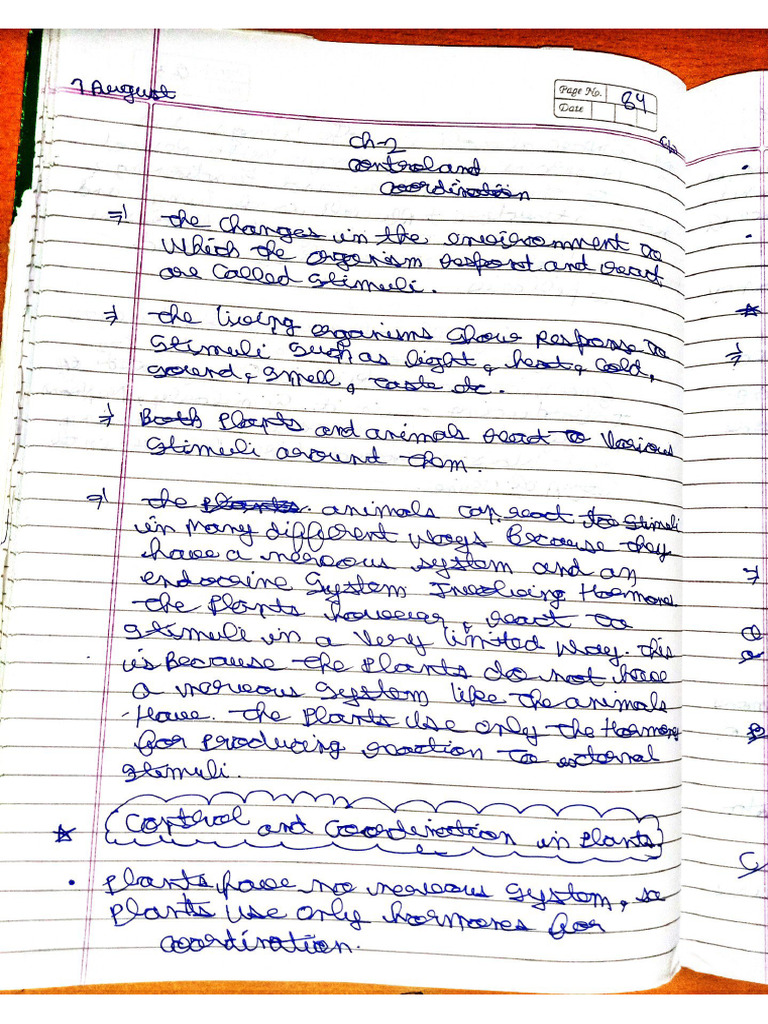 7 August
Page No. 84
Date
Ch-2
control and
coordination
⇒ the changes in the environment to
which the organism respont and react
are called stimuli.
⇒ the living organisms show Response to
stimuli such as light, heat, cold,
sound, smell, taste etc.
⇒ Both Plants and animals react to various
stimuli around them.
⇒ the plants. animals can react to stimuli
in many different ways because they
have a nervous system and an
endocrine system Involving Hormones
the Plants however, react to
stimuli in a very limited way. this
is Because the Plants do not have
a nervous system like the animals
Have. the Plants Use only the Hormones
for Producing reaction to external
stimuli.
Control and Coordination in Plants
• Plants have no nervous system, so
Plants Use only hormones for
coordination.